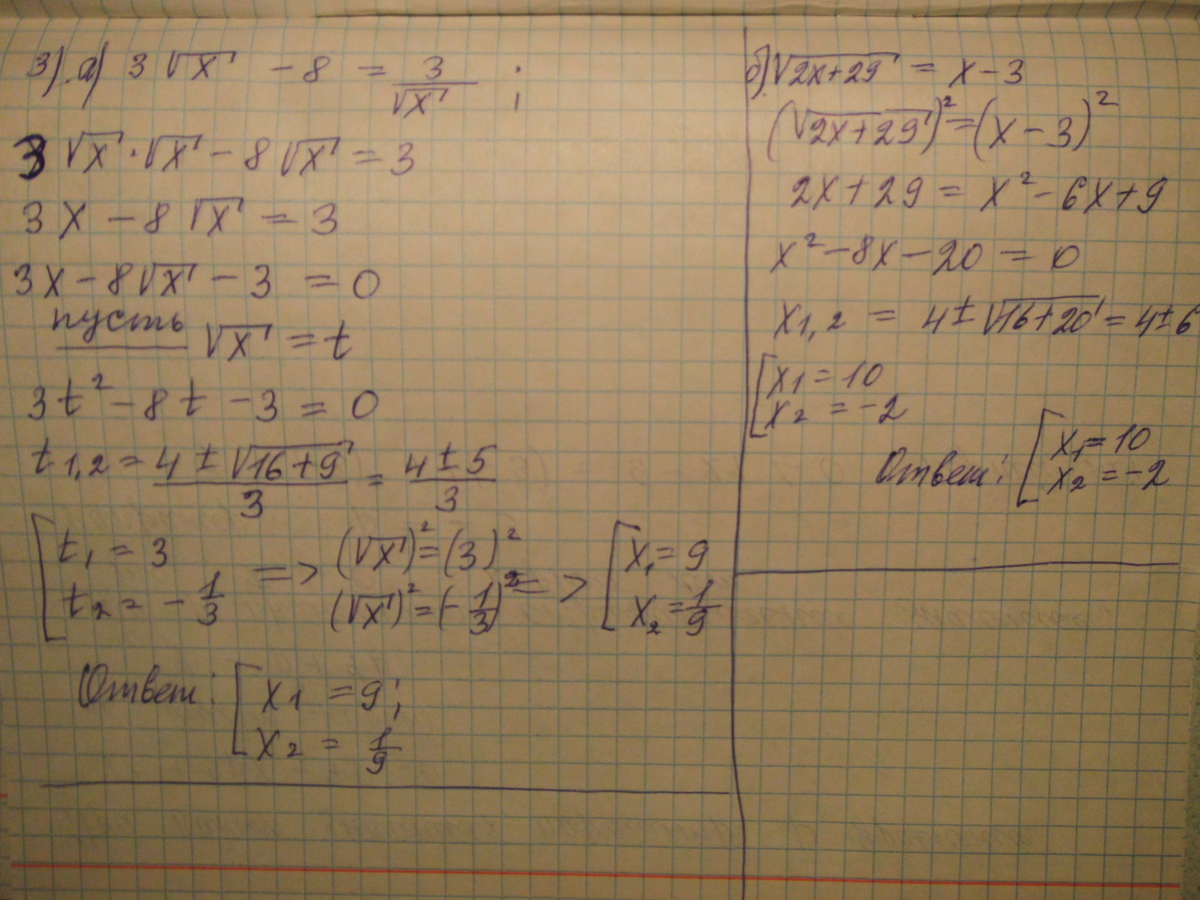 3). а) 3 √x - 8 = 3/√x ;
3 √x · √x - 8 √x = 3
3x - 8 √x = 3
3x - 8 √x - 3 = 0
пусть √x = t
3t² - 8t - 3 = 0
t1,2 = (4 ± √(16+9))/3 = (4 ± 5)/3
[ t1 = 3 => (√x)² = (3)² => [ x1 = 9
t2 = -1/3 (√x)² = (-1/3)² x2 = 1/9
Ответ: [ x1 = 9;
x2 = 1/9
б) √(2x+29) = x - 3
(√(2x+29))² = (x - 3)²
2x + 29 = x² - 6x + 9
x² - 8x - 20 = 0
x1,2 = 4 ± √(16+20) = 4 ± 6
[ x1 = 10
x2 = -2
Ответ: [ x1 = 10
x2 = -2